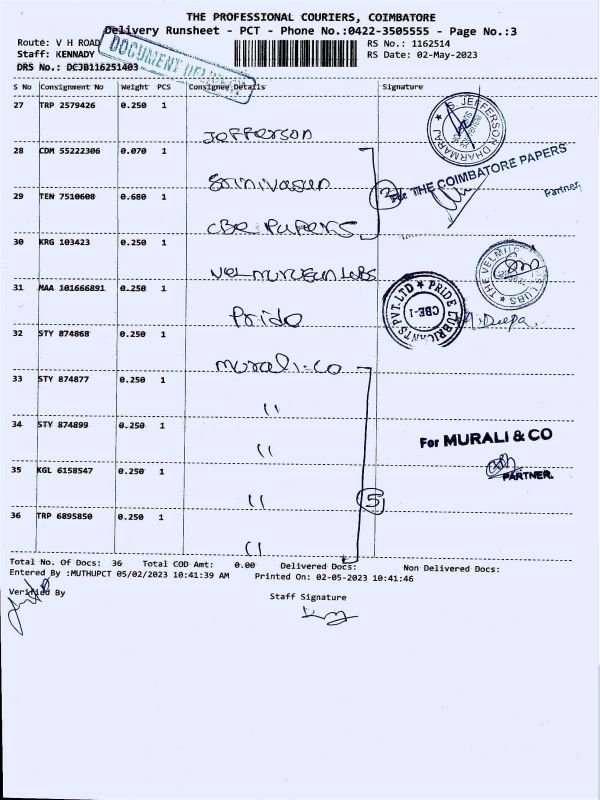 THE PROFESSIONAL COURIERS, COIMBATORE
Delivery Runsheet - PCT - Phone No.:0422-3505555 - Page No.:3
Route: V H ROAD
RS No.: 1162514
Staff: KENNADY
RS Date: 02-May-2023
DRS No.: DCJB116251403
DOCUMENT DELIVERY
S No Consignment No Weight PCS Consignee Details Signature
27 TRP 2579426 0.250 1
Jefferson
S. JEFFERSON DHARMARAJ
28 CDM 55222306 0.070 1
Srinivasan
For THE COIMBATORE PAPERS
Partner
29 TEN 7510608 0.680 1
CBE PAPERS
30 KRG 103423 0.250 1
Vel murugan Lubs
31 MAA 101666891 0.250 1
Pride
PRIDE LUBRICANTS PVT.LTD
CBE-1
Deepa
32 STY 874868 0.250 1
murali-co
33 STY 874877 0.250 1
"
34 STY 874899 0.250 1
"
For MURALI & CO
PARTNER.
35 KGL 6158547 0.250 1
"
5
36 TRP 6895850 0.250 1
"
Total No. Of Docs: 36 Total COD Amt: 0.00 Delivered Docs: Non Delivered Docs:
Entered By :MUTHUPCT 05/02/2023 10:41:39 AM Printed On: 02-05-2023 10:41:46
Verified By
Staff Signature